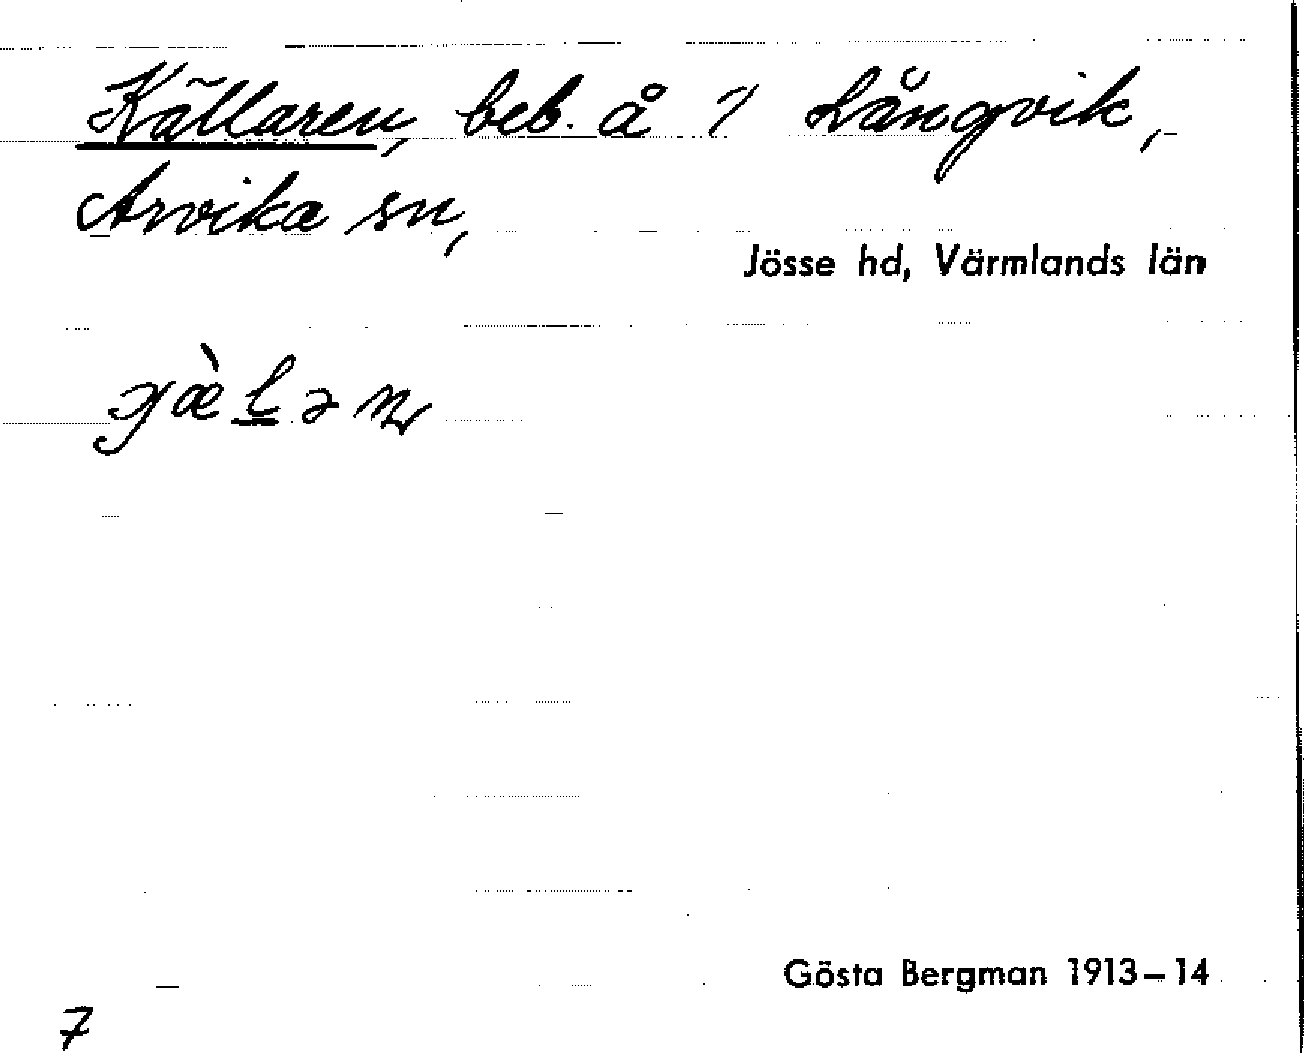 Källaren, beb. å 1/ Långvik,
Arvika sn,
Jösse hd, Värmlands län
Gösta Bergman 1913–14
7